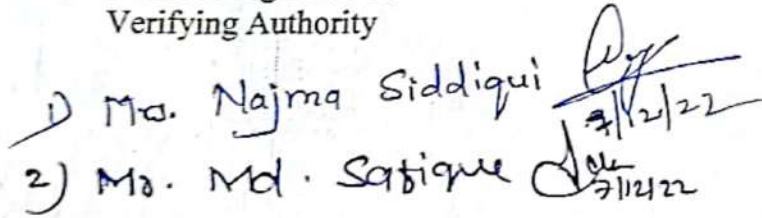 Verifying Authority
1) Ms. Najma Siddiqui
7/12/22
2) Mr. Md. Safique
7/12/22